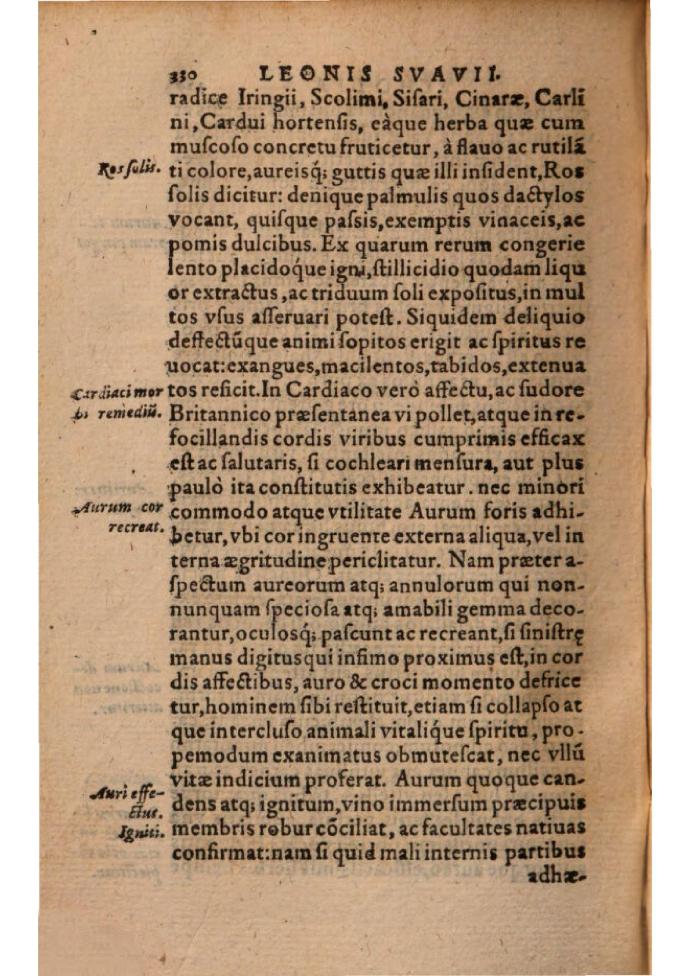 330 LEONIS SVAVII.
radice Iringii, Scolimi, Sisari, Cinaræ, Carlĩ
ni, Cardui hortensis, eàque herba quæ cum
muscoso concretu fruticetur, à flauo ac rutilã
Ros solis.
ti colore, aureisq́; guttis quæ illi insident, Ros
solis dicitur: denique palmulis quos dactylos
vocant, quisque passis, exemptis vinaceis, ac
pomis dulcibus. Ex quarum rerum congerie
lento placidoq́ue igni, stillicidio quodam liqu
or extractus, ac triduum soli expositus, in mul
tos vsus asseruari potest. Siquidem deliquio
deffectũque animi sopitos erigit ac spiritus re
uocat: exangues, macilentos, tabidos, extenua
Cardiaci mor
bi remediũ.
tos reficit. In Cardiaco verò affectu, ac sudore
Britannico præsentanea vi pollet, atque in re-
focillandis cordis viribus cumprimis efficax
est ac salutaris, si cochleari mensura, aut plus
paulò ita constitutis exhibeatur. nec minori
Aurum cor
recreat.
commodo atque vtilitate Aurum foris adhi-
betur, vbi cor ingruente externa aliqua, vel in
terna ægritudine periclitatur. Nam præter a-
spectum aureorum atq; annulorum qui non-
nunquam speciosa atq; amabili gemma deco-
rantur, oculosq́; pascunt ac recreant, si sinistrę
manus digitus qui infimo proximus est, in cor
dis affectibus, auro & croci momento defrice
tur, hominem sibi restituit, etiam si collapso at
que intercluso animali vitaliq́ue spiritu, pro-
pemodum exanimatus obmutescat, nec vllũ
vitæ indicium proferat. Aurum quoque can-
Auri effe-
ctus.
Igniti.
dens atq; ignitum, vino immersum præcipuis
membris robur cõciliat, ac facultates natiuas
confirmat: nam si quid mali internis partibus
adhæ-